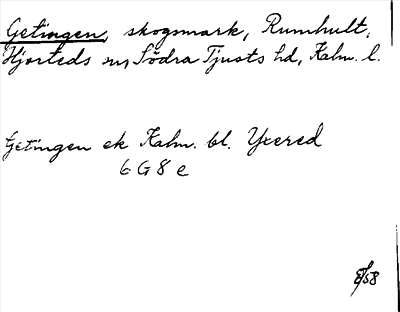 Getingen, skogsmark, Rumhult,
Hjorteds sn, Södra Tjusts hd, Kalm. l.
Getingen ek Kalm. bl. Yxered
6 G 8 e